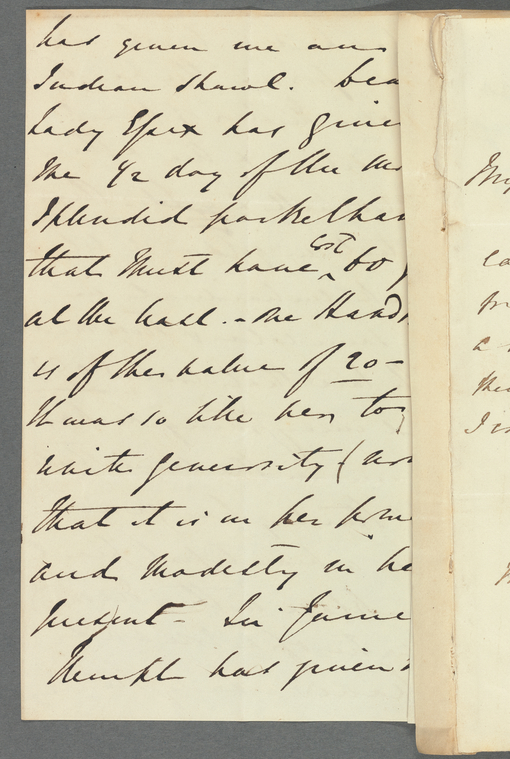 has given me an
Indian Shawl. bea
Lady Essex has give
me 1/2 day of the
Splendid pocket han
that must have cost 60
at the least. - the Hand
is of the value of 20 -
It was so like her to
unite generosity (
that it is in her
and modesty in he
present - Sir Jame
Kempt has given
My
a
I